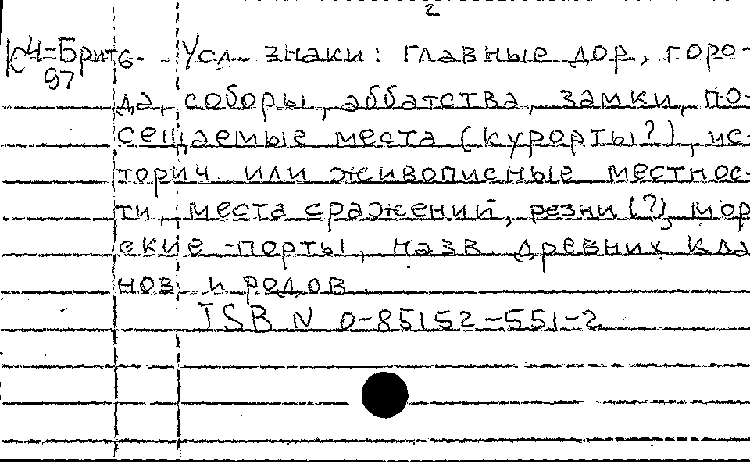 2
К4-Брит6- Усл. знаки: главные дор, горо-
97
да, соборы, аббатства, замки, по-
сещаемые места (курорты?), ис-
торич. или живописные местнос-
ти, места сражений, резни (?), мор
ские порты, назв. древних кла
нов и родов.
ISBN 0-85152-551-2